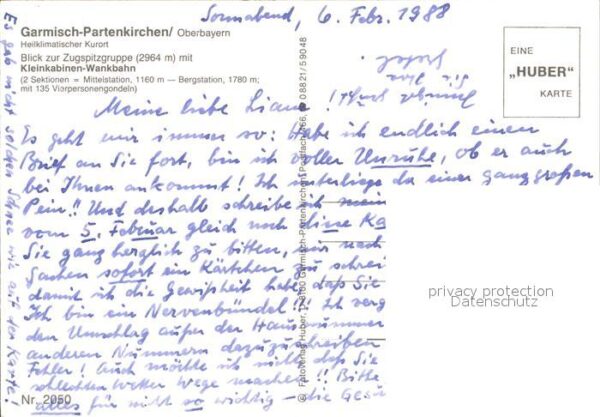 Sonnabend, 6. Febr. 1988
Garmisch-Partenkirchen/ Oberbayern
Heilklimatischer Kurort
Blick zur Zugspitzgruppe (2964 m) mit
Kleinkabinen-Wankbahn
(2 Sektionen = Mittelstation, 1160 m — Bergstation, 1780 m;
mit 135 Vierpersonengondeln)
EINE
„HUBER"
KARTE
Meine liebe Liane!
Es geht mir immer so: Habe ich endlich einen
Brief an Sie fort, bin ich voller Unruhe, ob er auch
bei Ihnen ankommt! Ich unterliege da einer ganz großen
Pein!! Und deshalb schreibe ich mein
vom 5. Februar gleich noch diese Ka
Sie ganz herzlich zu bitten, mir nach
Sachen sofort ein Kärtchen zu schrei
damit ich die Gewißheit habe, daß Sie
Ich bin ein Nervenbündel!!! Ich verg
den Umschlag außer der Hausnummer
anderen Nummern dazuzuschreiben
Fehler! Auch möchte ich nicht daß Sie
schlechten Wetter Wege machen!! Bitte
alles für nicht so wichtig – die Gesu
Nr. 2050
Es gab nicht solchen Schnee wie auf der Karte!
© Fotoverlag Huber, D-8100 Garmisch-Partenkirchen, Postfach 266, ☎ 08821/59048
privacy protection
Datenschutz